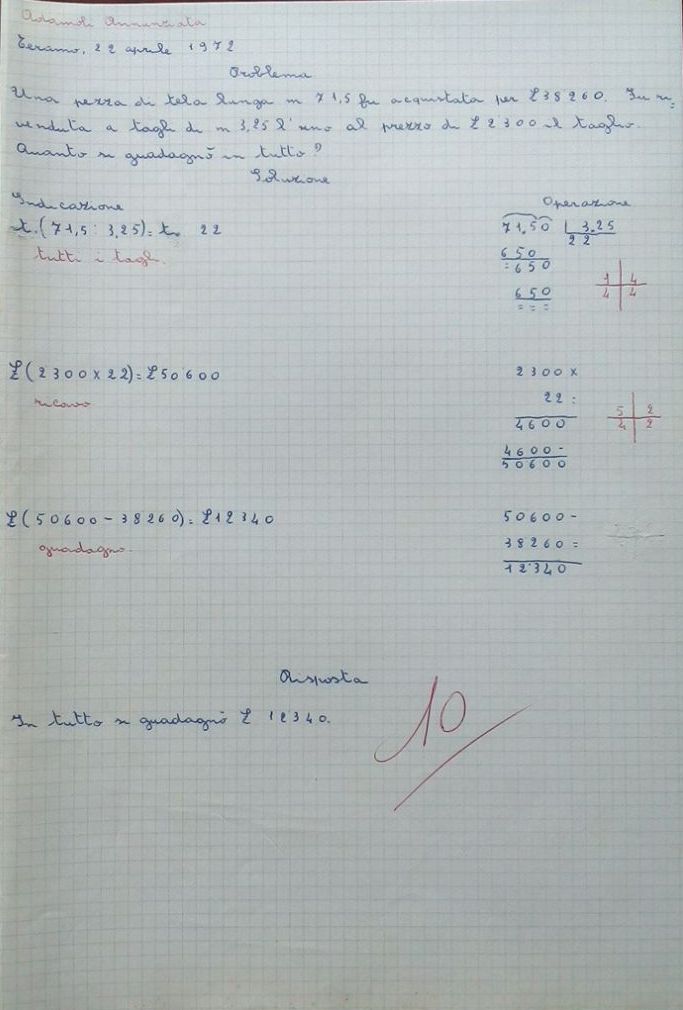 Adamoli Annunziata
Teramo, 22 aprile 1972
Problema
Una pezza di tela lunga m 71,5 fu acquistata per £38260. Fu ri=
venduta a tagli di m 3,25 l'uno al prezzo di £2300 il taglio.
Quanto si guadagnò in tutto?
Soluzione
Indicazione
Operazione
t.(71,5:3,25)=t. 22
tutti i tagli.
71,50 3,25
22
650
=650
650
= = =
1 4
4 4
£(2300x22)=£50600
ricavo
2300x
22=
4600
4600-
50600
5 2
4 2
£(50600-38260)=£12340
guadagno.
50600-
38260=
12340
Risposta
In tutto si guadagnò £ 12340.
10